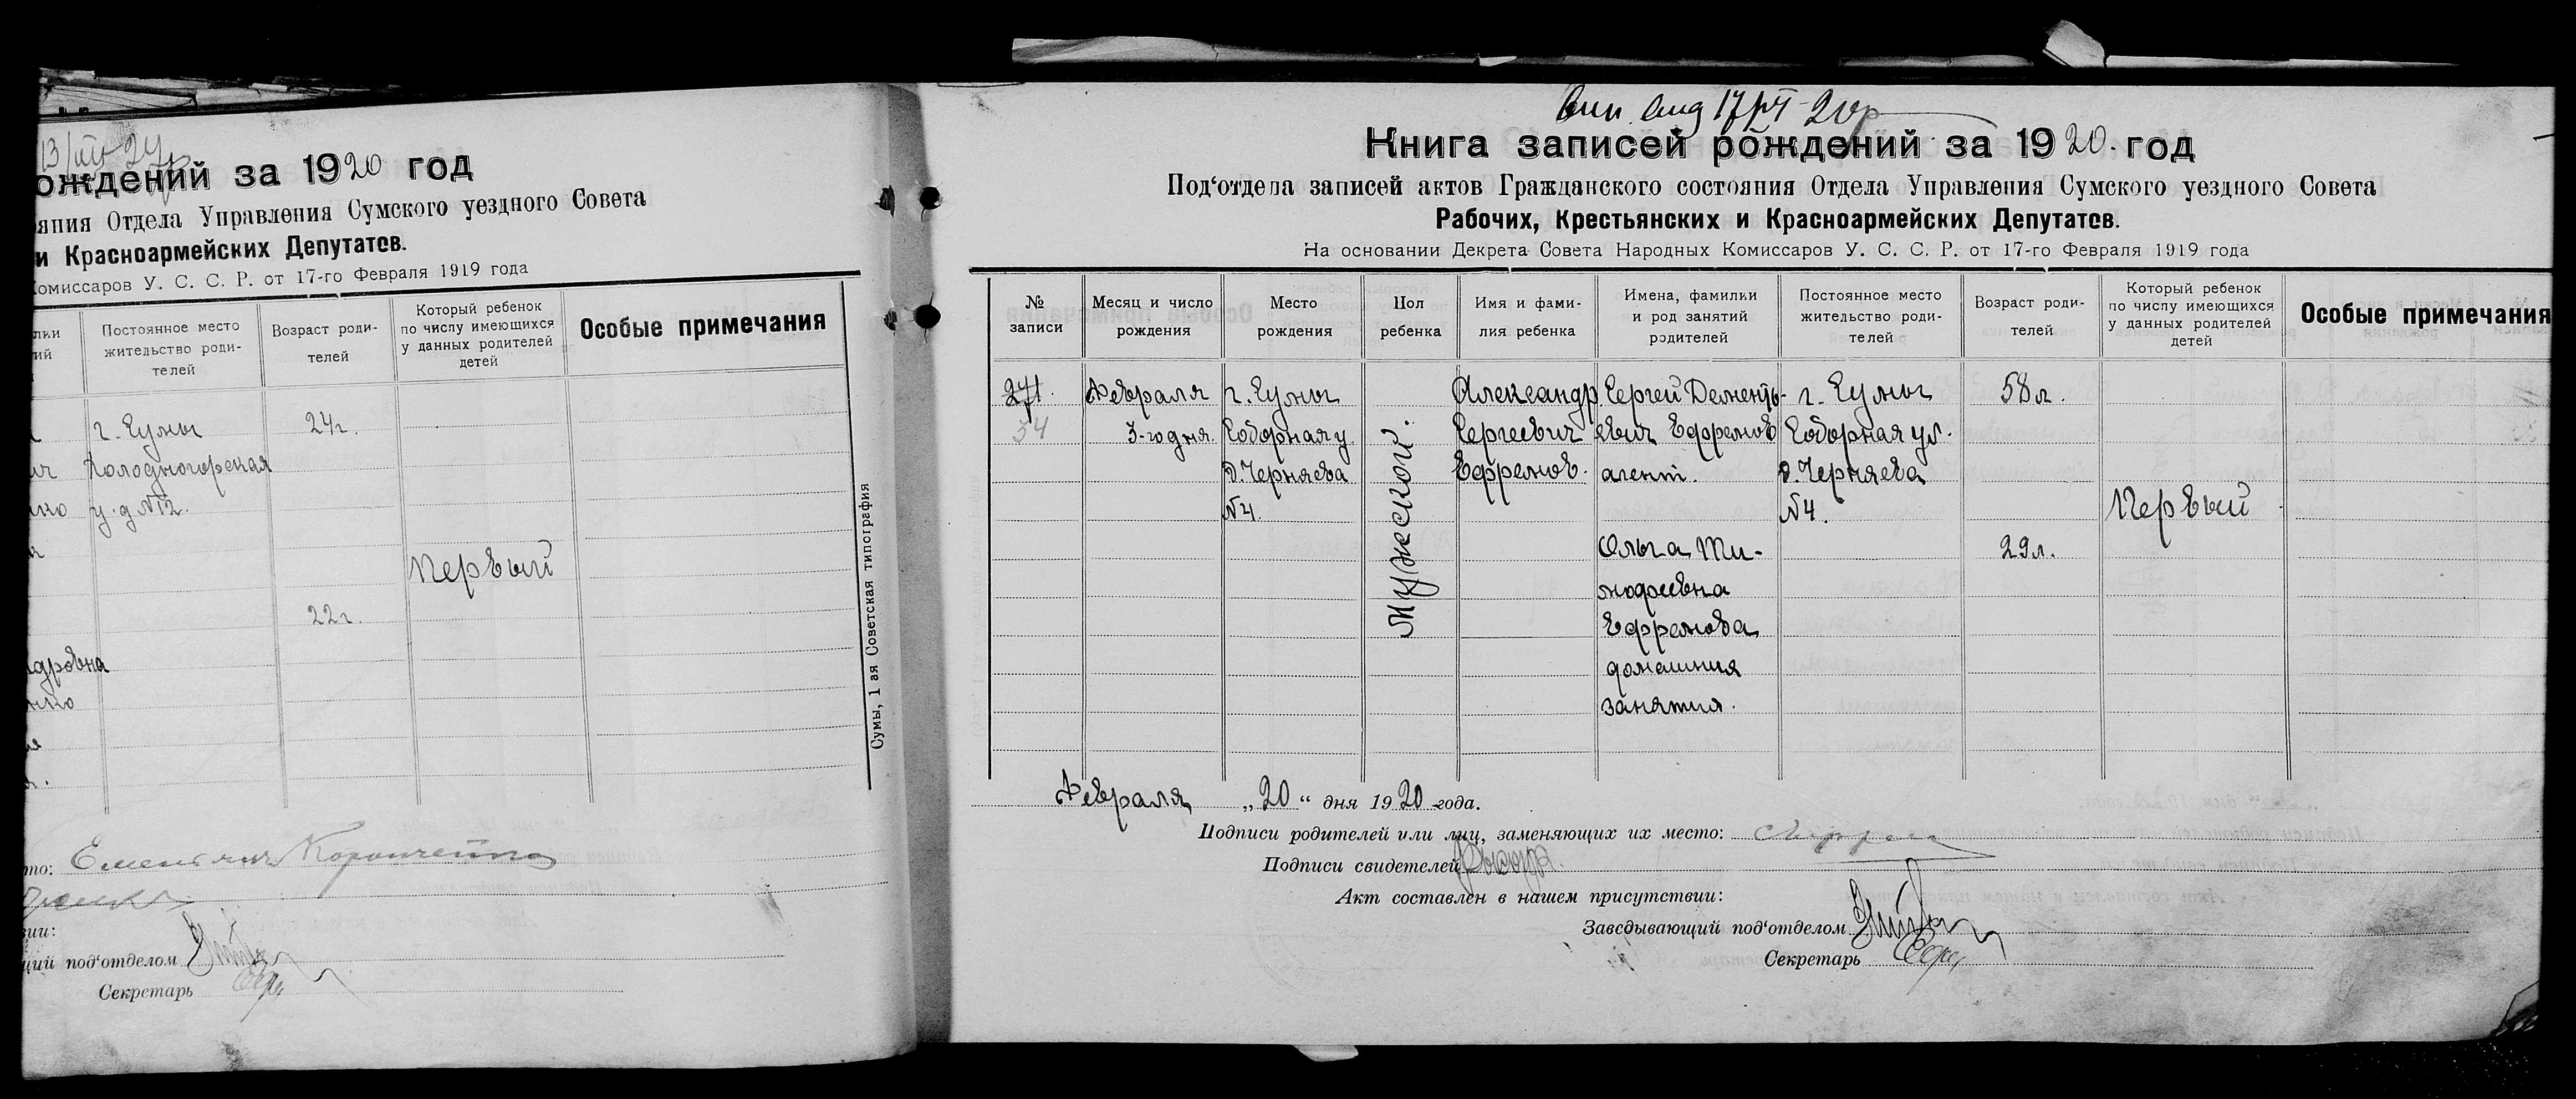 13/III 24г
ождений за 1920 год
яния Отдела Управления Сумского уездного Совета
и Красноармейских Депутатов.
Комиссаров У. С. С. Р. от 17-го Февраля 1919 года
Постоянное место жительство роди- телей
Возраст роди- телей
Который ребенок по числу имеющихся у данных родителей детей
Особые примечания
г. Сумы
Холодногорская
у. д №12.
24г.
22г.
Первый
дровна
нко
Сумы, 1 ая Советская типография
то: Емельян
ции:
щий под'отделом
Секретарь
Книга записей рождений за 1920. год
Под'отдела записей актов Гражданского состояния Отдела Управления Сумского уездного Совета
Рабочих, Крестьянских и Красноармейских Депутатов.
На основании Декрета Совета Народных Комиссаров У. С. С. Р. от 17-го Февраля 1919 года
№ записи
Месяц и число рождения
Место рождения
Пол ребенка
Имя и фами- лия ребенка
Имена, фамилки и род занятий родителей
Постоянное место жительство роди- телей
Возраст роди- телей
Который ребенок по числу имеющихся у данных родителей детей
Особые примечания
271.
34
Февраля
3-го дня.
г. Сумы
Соборная у.
д. Черняева
№4.
Мужеской.
Александр
Сергеевич
Ефремов.
Сергей Дементь-
евич Ефремов
агент.
Ольга Ти-
мофеевна
Ефремова
домашния
занятия.
г. Сумы
Соборная ул.
д. Черняева
№4.
58л.
29л.
Первый
Февраля „20“ дня 1920 года.
Подписи родителей или лиц, заменяющих их место:
Подписи свидетелей
Акт составлен в нашем присутствии:
Заведывающий под'отделом
Секретарь